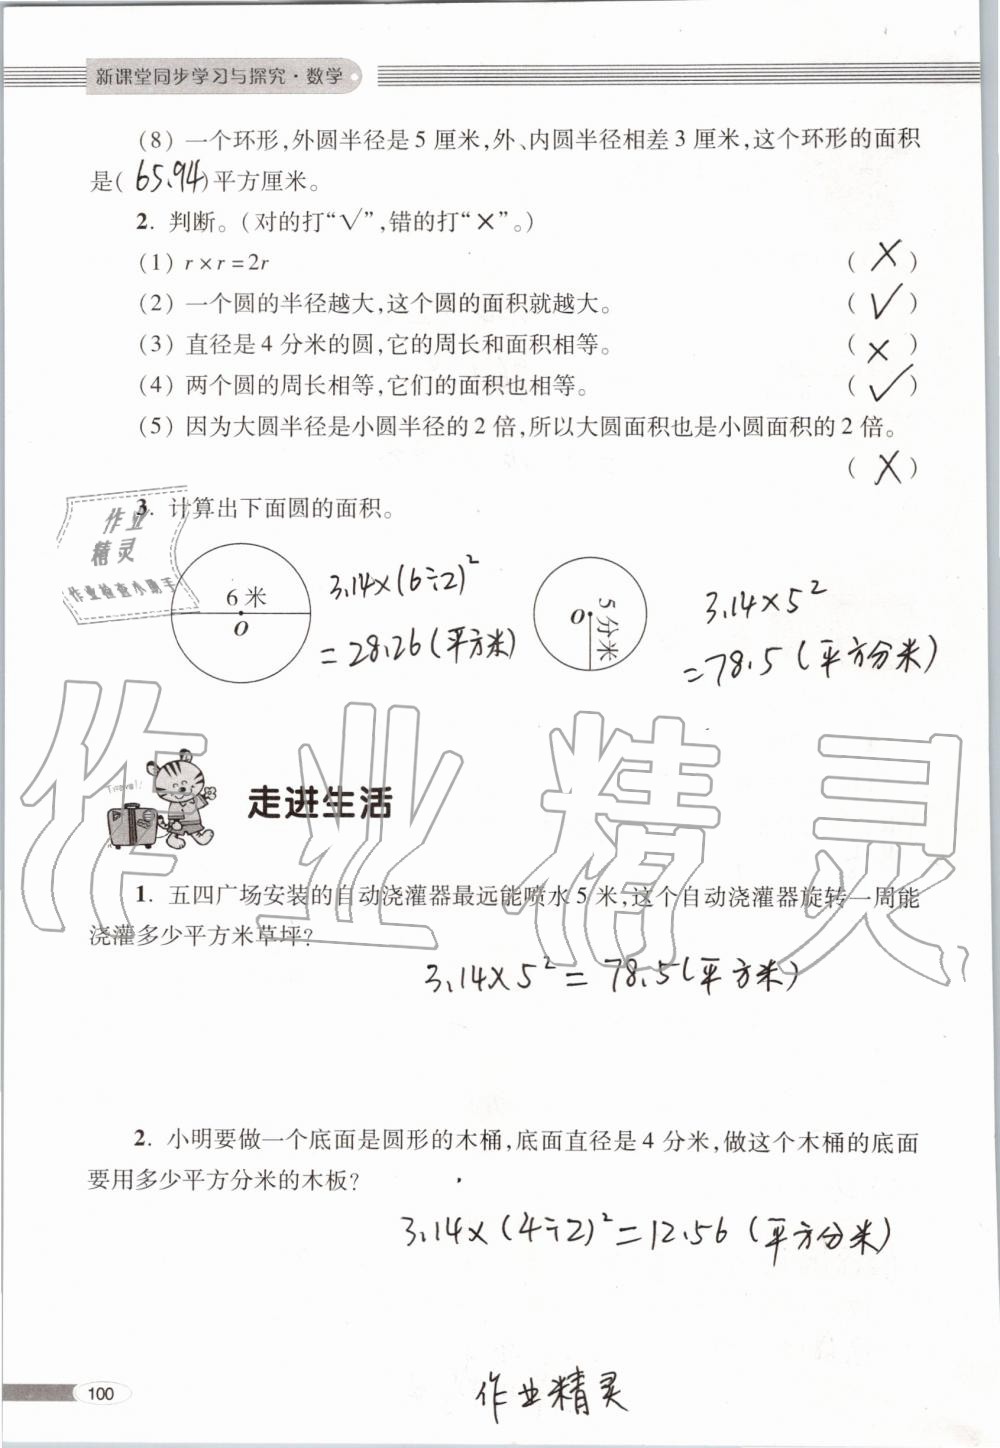 新课堂同步学习与探究·数学
(8) 一个环形,外圆半径是5厘米,外、内圆半径相差3厘米,这个环形的面积
是( 65.94 )平方厘米。
2. 判断。(对的打“√”,错的打“×”。)
(1) r×r=2r ( × )
(2) 一个圆的半径越大,这个圆的面积就越大。 ( √ )
(3) 直径是4分米的圆,它的周长和面积相等。 ( × )
(4) 两个圆的周长相等,它们的面积也相等。 ( √ )
(5) 因为大圆半径是小圆半径的2倍,所以大圆面积也是小圆面积的2倍。
( × )
3. 计算出下面圆的面积。
作业
精灵
作业检查小助手
6米
O
3.14×(6÷2)²
=28.26(平方米)
O
5分米
3.14×5²
=78.5(平方分米)
作业精灵
Travel!
走进生活
1. 五四广场安装的自动浇灌器最远能喷水5米,这个自动浇灌器旋转一周能
浇灌多少平方米草坪?
3.14×5²=78.5(平方米)
2. 小明要做一个底面是圆形的木桶,底面直径是4分米,做这个木桶的底面
要用多少平方分米的木板?
3.14×(4÷2)²=12.56(平方分米)
100
作业精灵